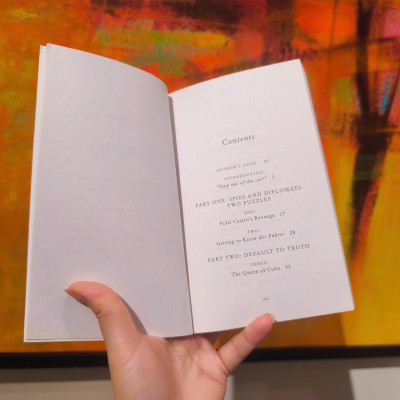 Contents
AUTHOR'S NOTE xi
INTRODUCTION:
"Step out of the car!" 1
PART ONE: SPIES AND DIPLOMATS:
TWO PUZZLES
ONE:
Fidel Castro's Revenge 17
TWO:
Getting to Know der Führer 28
PART TWO: DEFAULT TO TRUTH
THREE:
The Queen of Cuba 53